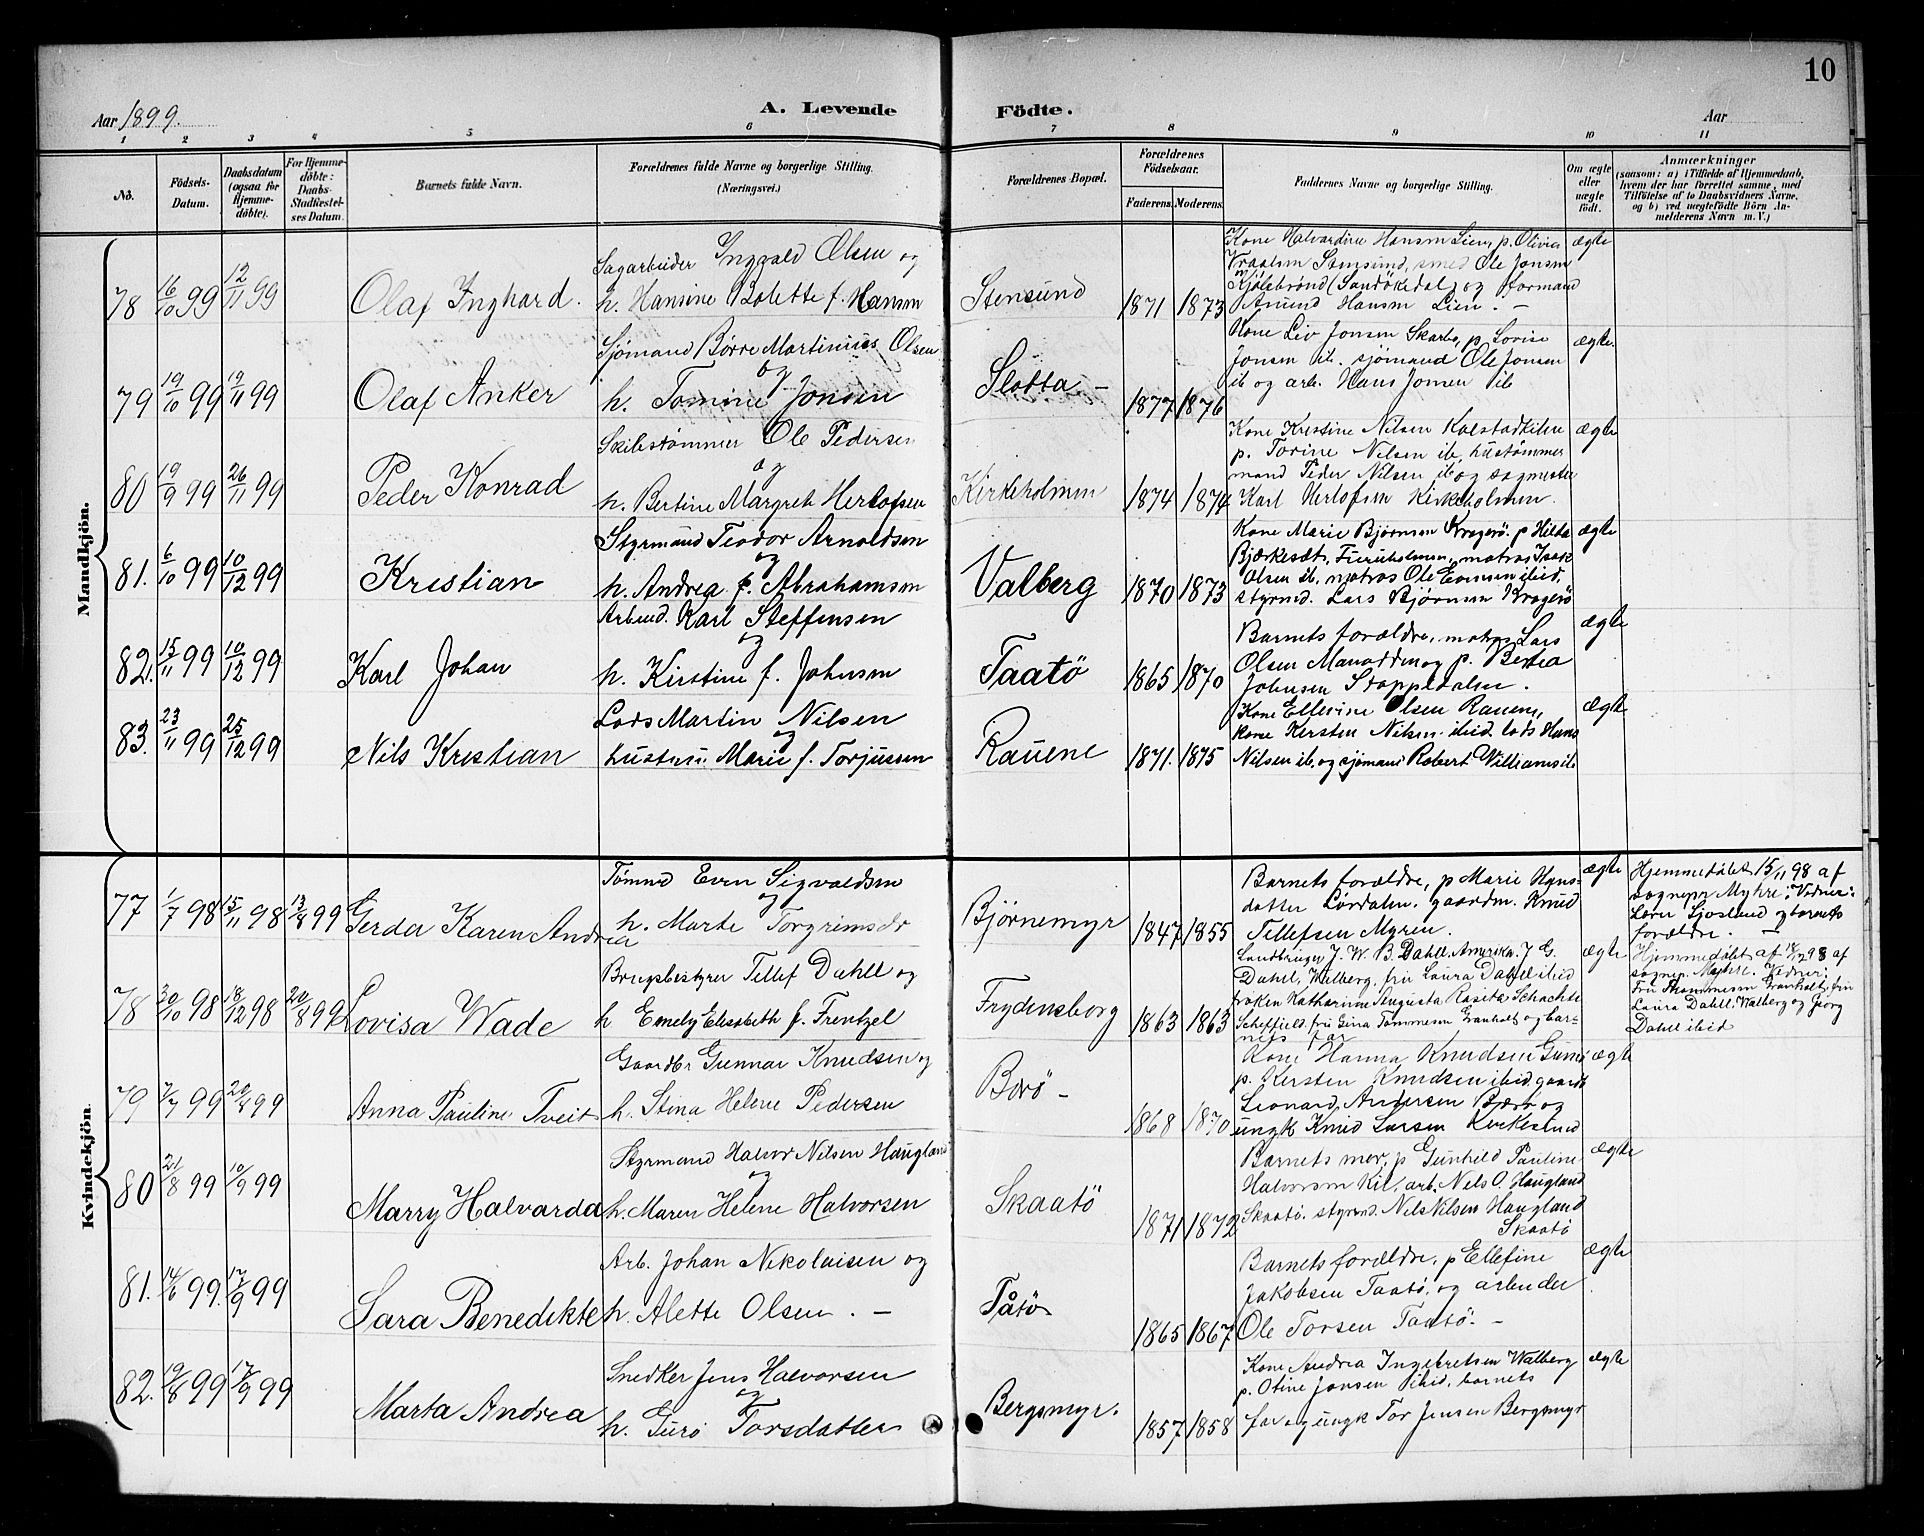 10
Aar 1899. A. Levende Födte. Aar
1 2 3 4 5 6 7 8 9 10 11
No. Födsels-Datum. Daabsdatum (ogsaa for Hjemme-döbte). For Hjemme-döbte: Daabs-Stadfæstel-ses Datum. Barnets fulde Navn. Forældrenes fulde Navne og borgerlige Stilling. (Næringsvei.) Forældrenes Bopæl. Forældrenes Födselsaar. Faderens. Moderens. Faddernes Navne og borgerlige Stilling. Om ægte eller uægte födt. Anmærkninger (saasom: a) i Tilfælde af Hjemmedaab, hvem der har forrettet samme, med Tilföielse af to Daabsvidners Navne, og b) ved uægtefödte Börn An-melderens Navn m. V.)
Mandkjön.
78 16/10 99 12/11 99 Olaf Inghard.
Sagarbeider Inggald Olsen og
h. Hansine Bolette f. Hansen
Stensund 1871 1873
Kone Halvardine Hansen Lien, p. Olivia
Vraalsen Stensund, smed Ole Jonsen
Kjölebrønd (Sandökedal) og formand
Amund Hansen Lien. –
ægte
79 19/10 99 19/11 99 Olaf Anker
Sjömand Børre Martinius Olsen
og
h. Tomine Jonsen
Slotta – 1877 1876
Kone Liv Jonsen Skarbo, p. Lovise
Jonsen ib. sjömand Ole Jonsen
ib og arb. Hans Jonsen ib
ægte.
80 19/9 99 26/11 99 Peder Konrad
Skibstømmer Ole Pedersen
og
h. Bertine Margrete Herlofsen
Kirkeholmen 1874 1874
Kone Kristine Nilsen Kalstadkilen
p. Torine Nilsen ib, hustømmer
mand Peder Nilsen ib og sagmester
Karl Herlofsen Kirkeholmen.
ægte
81. 6/10 99 10/12 99 Kristian
Styrmand Teodor Arnoldsen
og
h. Andrea f. Abrahamsen
Valberg 1870 1873
Kone Marie Bjørnsen Kragerö. p Hilda
Bjærkesæt, Furuholmen, matros Isak
Olsen ib, matros Ole Evensen ibid,
styrmd. Lars Bjørnsen Kragerö
ægte
82. 15/11 99 10/12 99 Karl Johan
Arbeid. Karl Steffensen
og
h. Kirstine f. Johnsen
Taatö 1865 1870
Barnets forældre, matros Lars
Olsen og p. Bertea
Johnsen Stoppedalen.
ægte
83. 23/11 99 25/12 99 Nils Kristian
Lods Martin Nilsen
og
hustru Marie f. Torjussen
Rauene 1871. 1875
Kone Ellevine Olsen Rauene,
kone Kersten Nilsen ibid. lods Hans
Nilsen ib, og sjömand Robert Williams ib
ægte
Kvindekjön.
77 1/7 98 15/11 98 13/8 99 Gerda Karen Andrea
Tömmd Even Sigvaldsen
og
h. Marte Torgrimsdr
Björnemyr 1847 1855
Barnets forældre, p Marie Hans-
datter Lördalen. gaardm. Knud
Tellefsen Myren.
ægte
Hjemmedöbt 15/11 98 af
sognepr Myhre. Vidner:
Lærer Sjöslund og barnets
forældre. –
78 30/10 98 18/12 98 20/8 99 Lovisa Wade
Brugsbestyrer Tellef Dahll og
h Emely Elisabeth f. Frentzel
Frydensborg 1863 1863
Landbruger J. W. B. Dahll, Amerika. J. G.
Dahll, Walberg, fru Laura Dahll ibid
fröken Katharine Augusta Rosita Schachte
Scheffield, fru Gina Tommesen Granholt og bar-
nets far
ægte
Hjemmedöbt af 18/12 98 af
sognep. Myhre. Vidner:
Fru Thommesen Granholt, fru
Laura Dahll, Walberg og Georg
Dahll ibid
79 7/7 99 20/8 99 Anna Pauline Tveit
Gaardbr Gunnar Knudsen og
h. Stina Helene Pedersen
Borö – 1868 1870
Kone Hanna Knudsen
p. Kersten Knudsen ibid. gaardb
Leonard Andersen Bærö og
ungk Knud Larsen Kirkesund
ægte
80 21/8 99 10/9 99 Marry Halvarda
Styrmand Halvor Nilsen Haugland
og
h. Maren Helene Halvorsen
Skaatö 1871 1872
Barnets mor, p Gunhild Pauline
Halvorsen Kil, arb. Nils O. Haugland
Skaatö. styrmd. Nils Nilsen Haugland
Skaatö
ægte
81. 14/6 99. 17/9 99 Sara Benedikte
Arb. Johan Nikolaisen og
h. Alette Olsen. –
Tåtö 1865 1867
Barnets forældre, p Ellefine
Jakobsen Taatö, og arbeider
Ole Torsen Taatö. –
ægte
82. 19/8 99 17/9 99 Marta Andrea
Snedker Jens Halvorsen
og
h. Guro Torsdatter
Bergsmyr. 1857 1858
Kone Andrea Ingebretsen Walberg
p. Otine Jonsen ibid, barnets
far og ungk Tor Jensen Bergsmyr
ægte